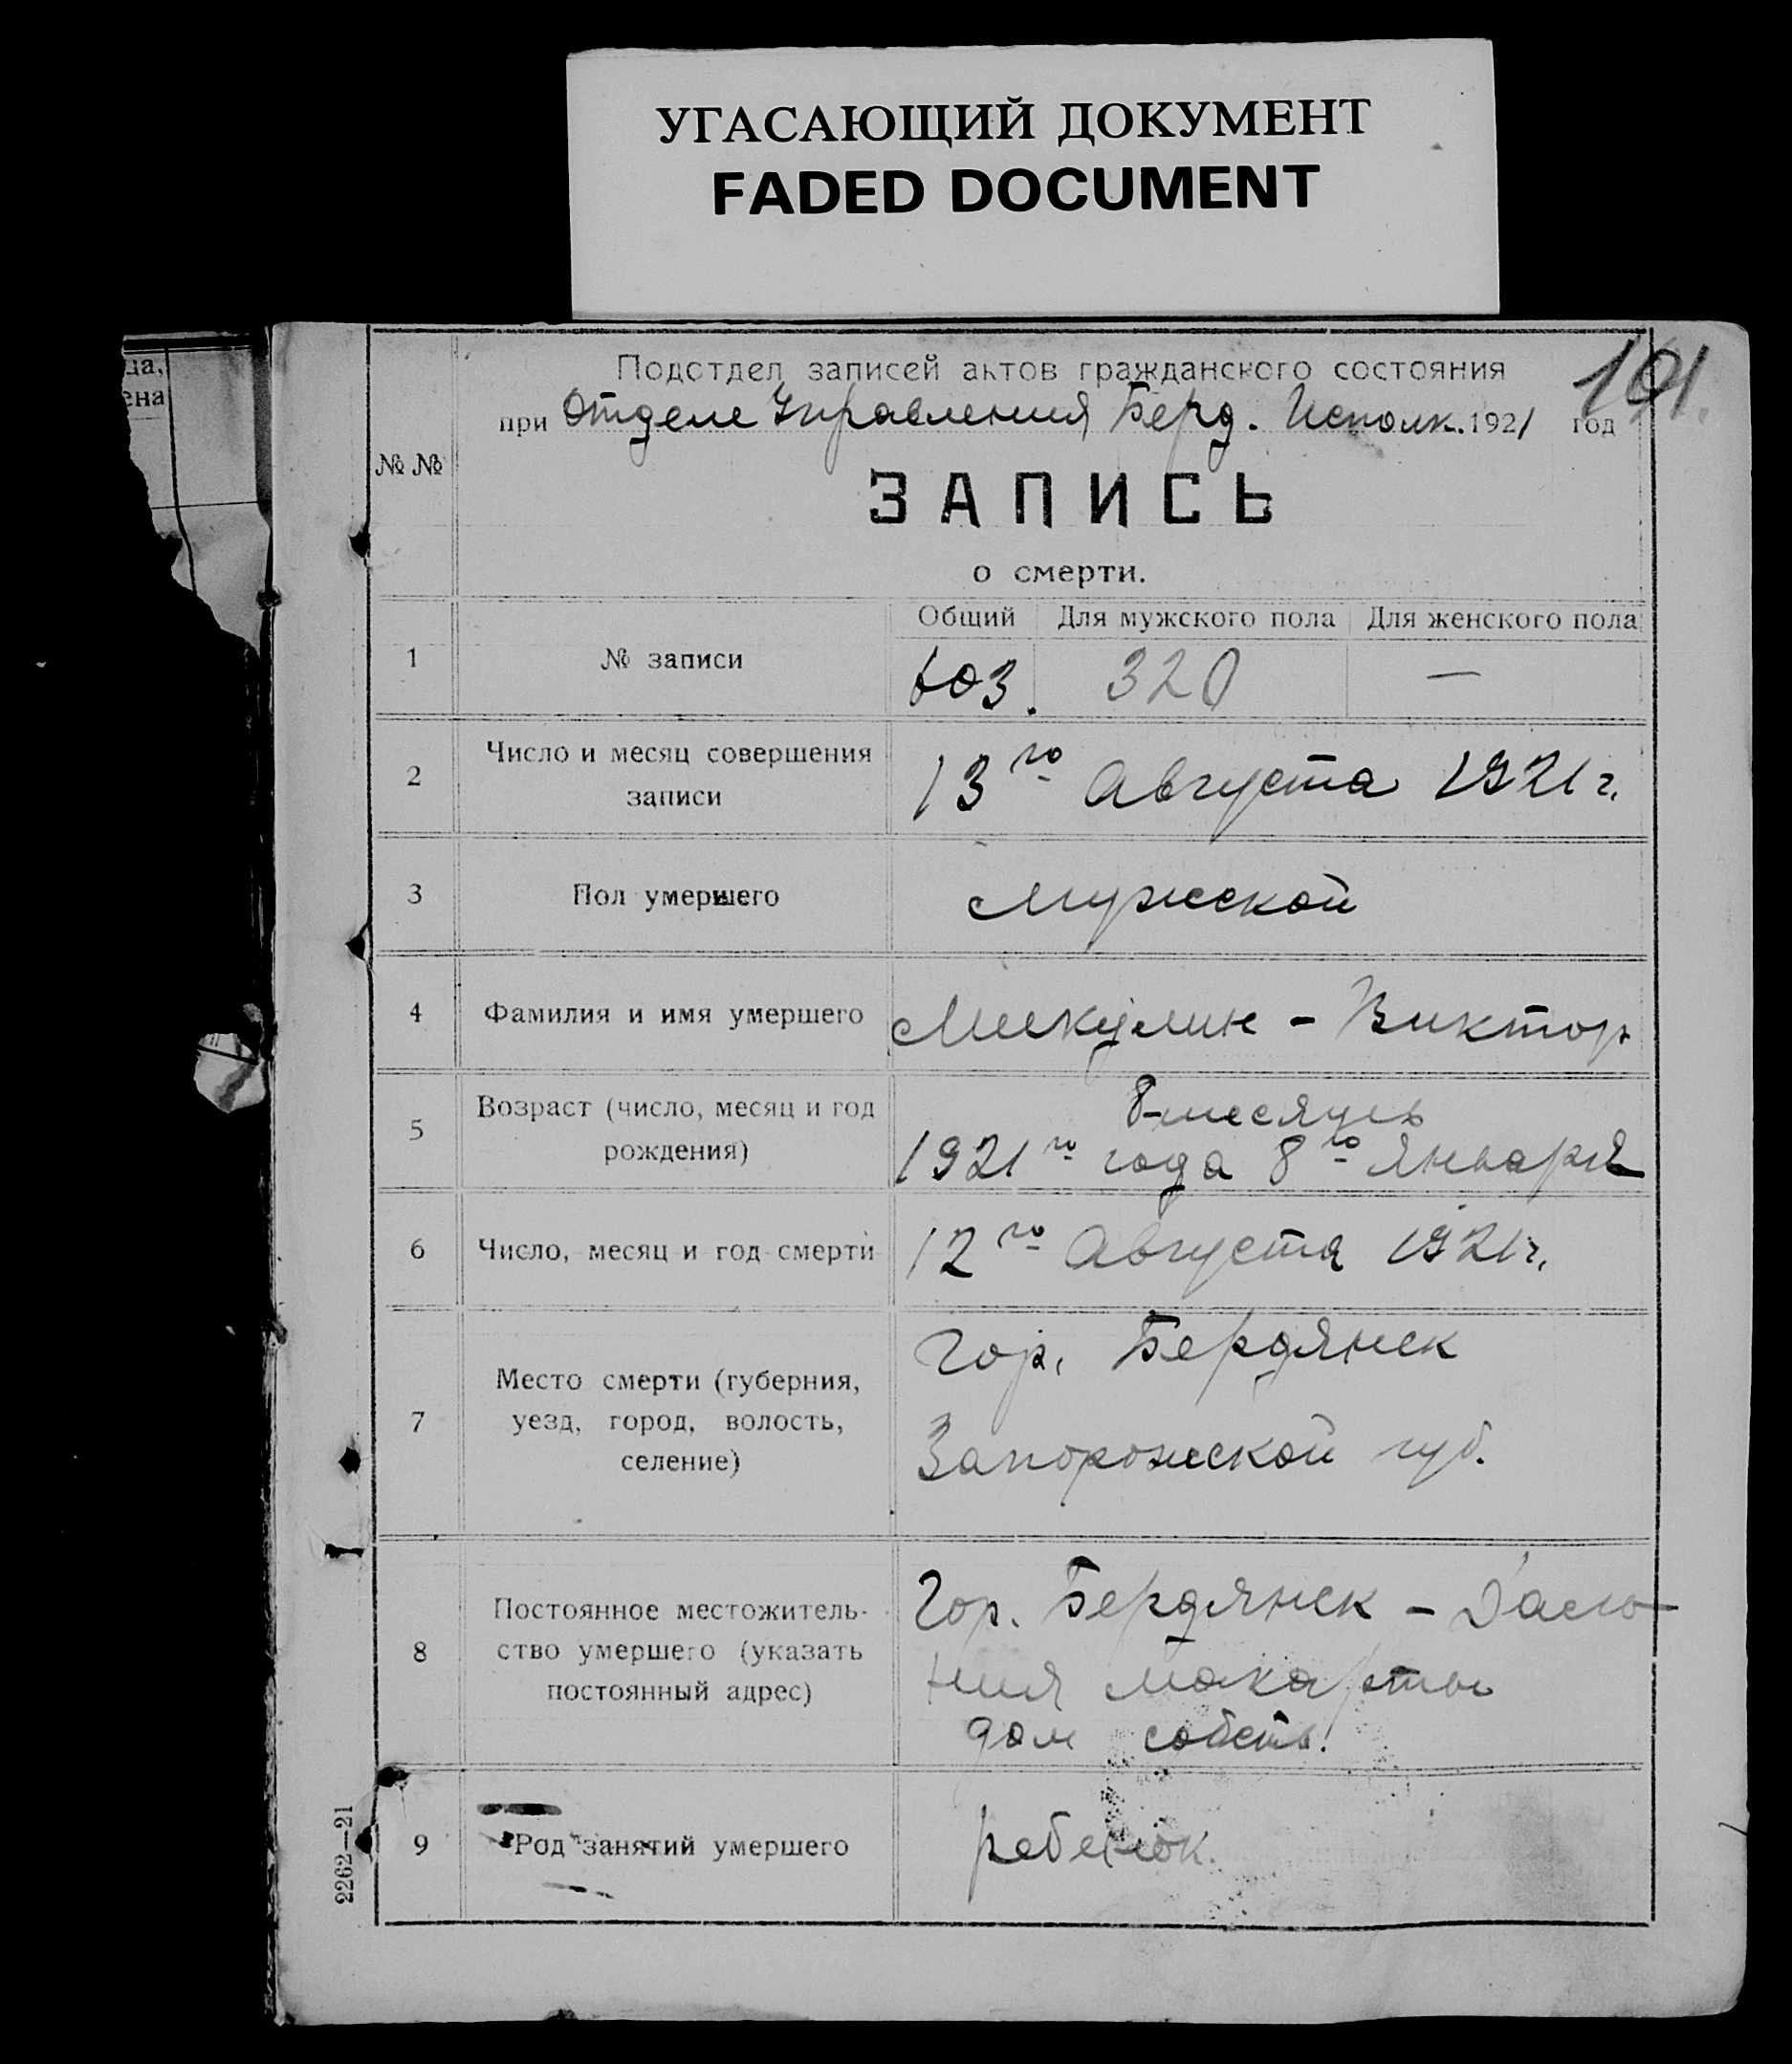 УГАСАЮЩИЙ ДОКУМЕНТ
FADED DOCUMENT
да,
ена
191
Подотдел записей актов гражданского состояния
при Отделе Управления Берд. Исполк. 1921 год
№ №
ЗАПИСЬ
о смерти.
Общий Для мужского пола Для женского пола
1 № записи 603. 320 —
2 Число и месяц совершения
записи
13го Августа 1921 г.
3 Пол умершего мужской
4 Фамилия и имя умершего Микулин - Виктор
5 Возраст (число, месяц и год
рождения)
8 месяць
1921го года 8го Января
6 Число, месяц и год смерти 12го Августа 1921 г.
7 Место смерти (губерния,
уезд, город, волость,
селение)
Гор. Бердянск
Запорожской губ.
8 Постоянное местожитель-
ство умершего (указать
постоянный адрес)
Гор. Бердянск -
дом собств.
9 Род занятий умершего ребенок.
2262—21